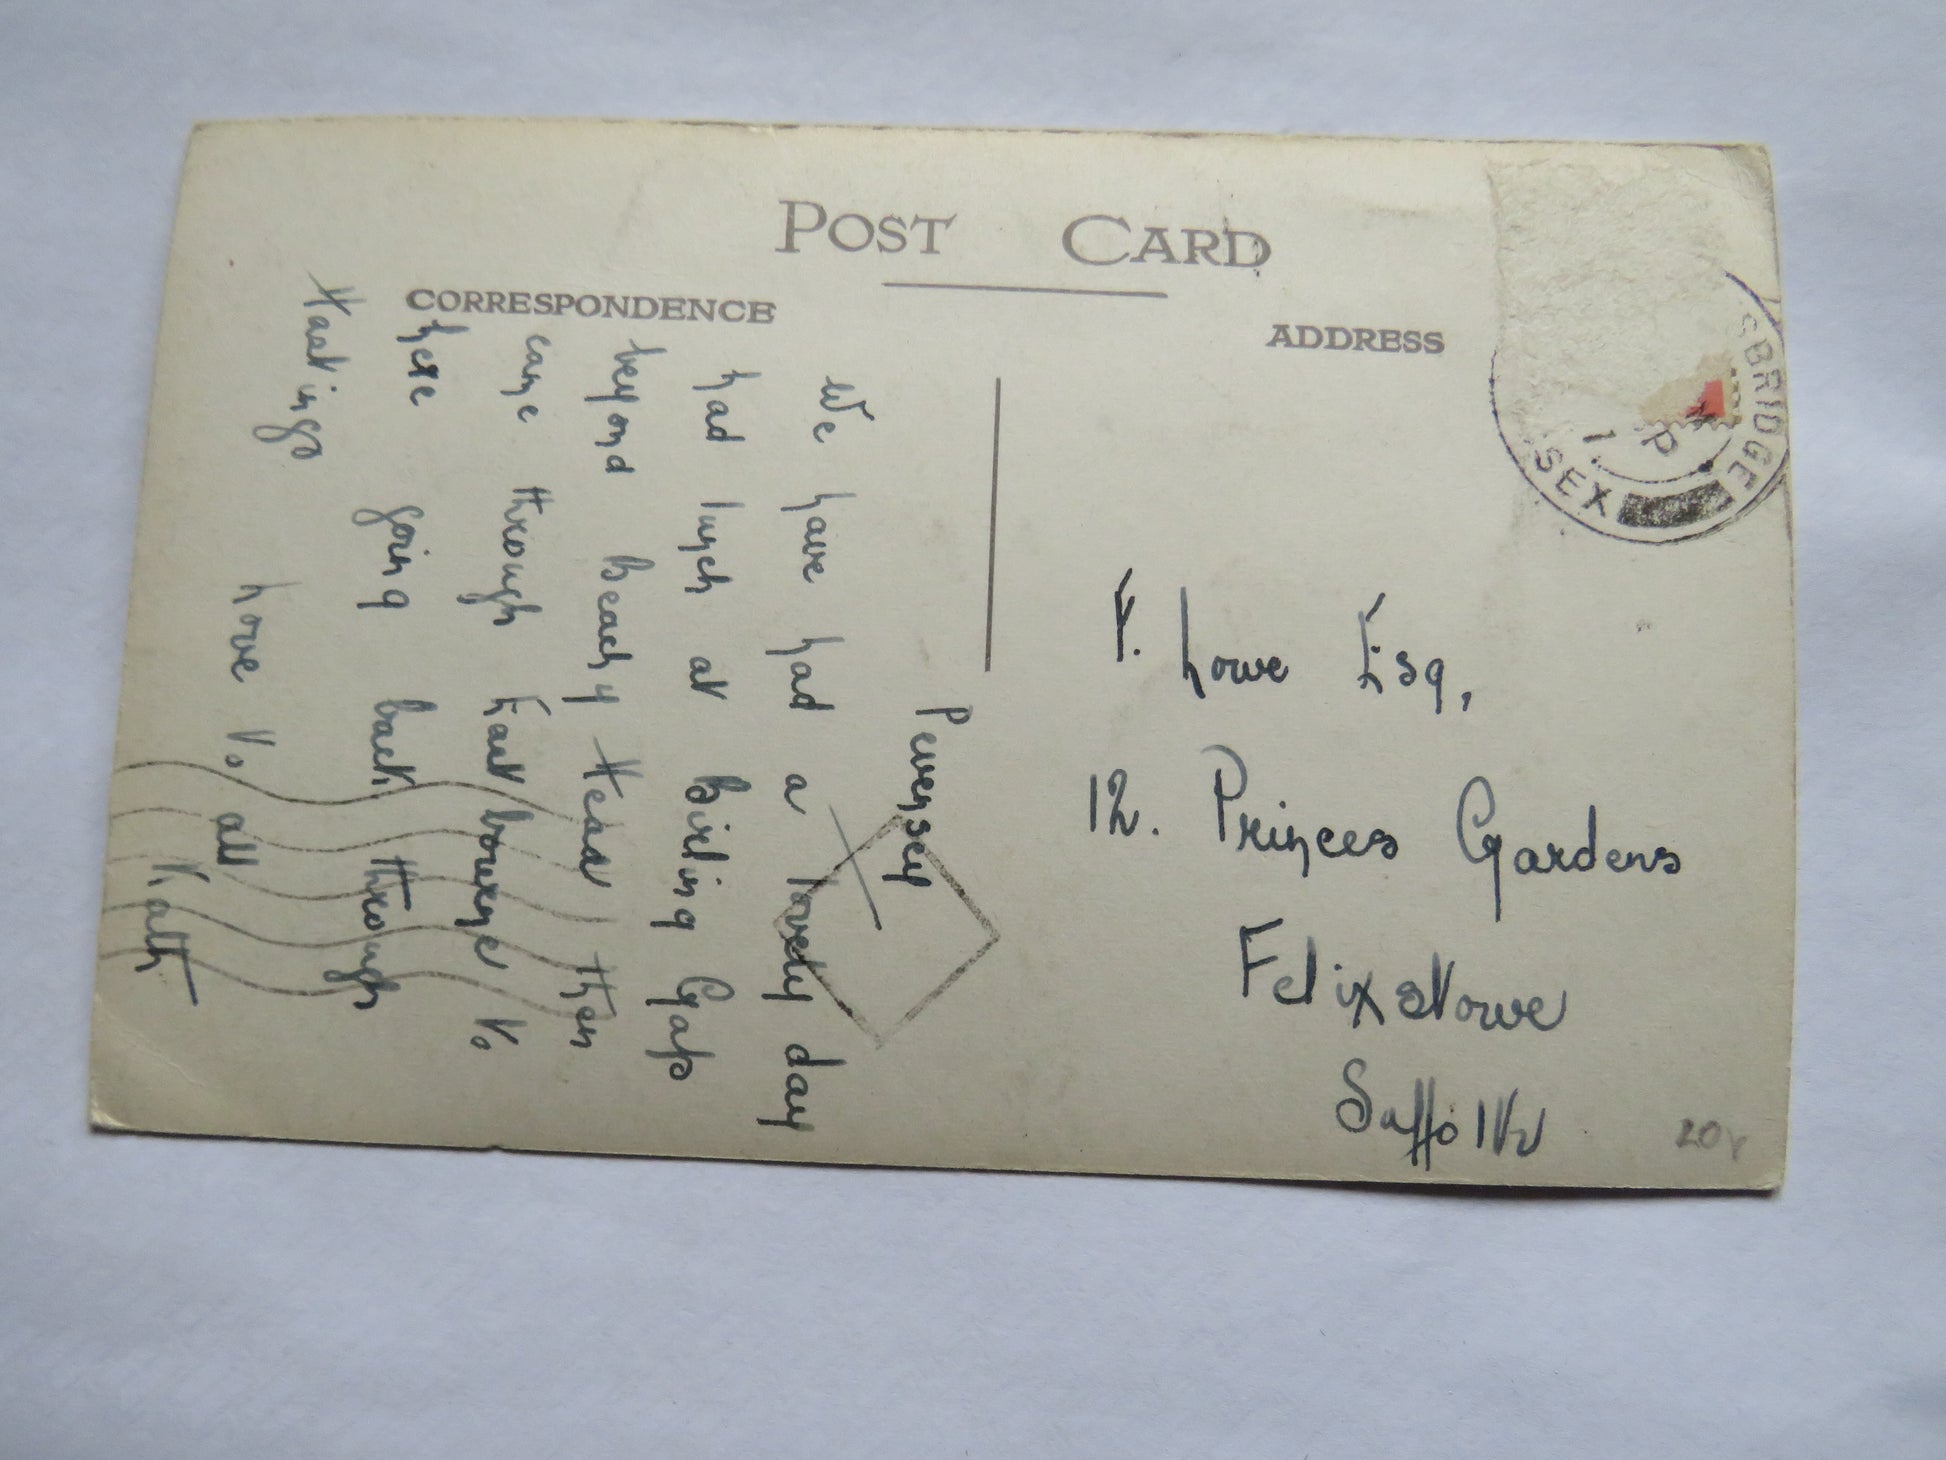 POST CARD
CORRESPONDENCE
ADDRESS
SBRIDGE
SEX
P M
1.
Pevensey
We have had a lovely day
had lunch at Birling Gap
beyond Beachy Head then
came through Eastbourne to
here going back through
Hastings
Love to all
Kath
F. Lowe Esq,
12. Princes Gardens
Felixstowe
Suffolk
20